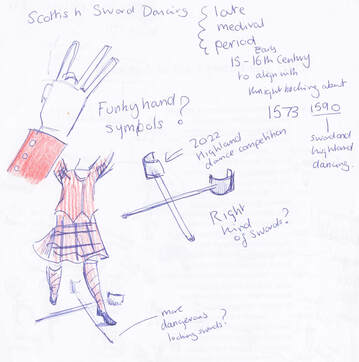 Scottish Sword Dancing
late
medival
period
Early
15-16th Century
to align with
Knight teching about
1573 1590
sword and
highland
dancing.
Funky hand
symbols?
2022
Highland
dance competition
Right
kind
of swords?
more
dangerous
looking swords?